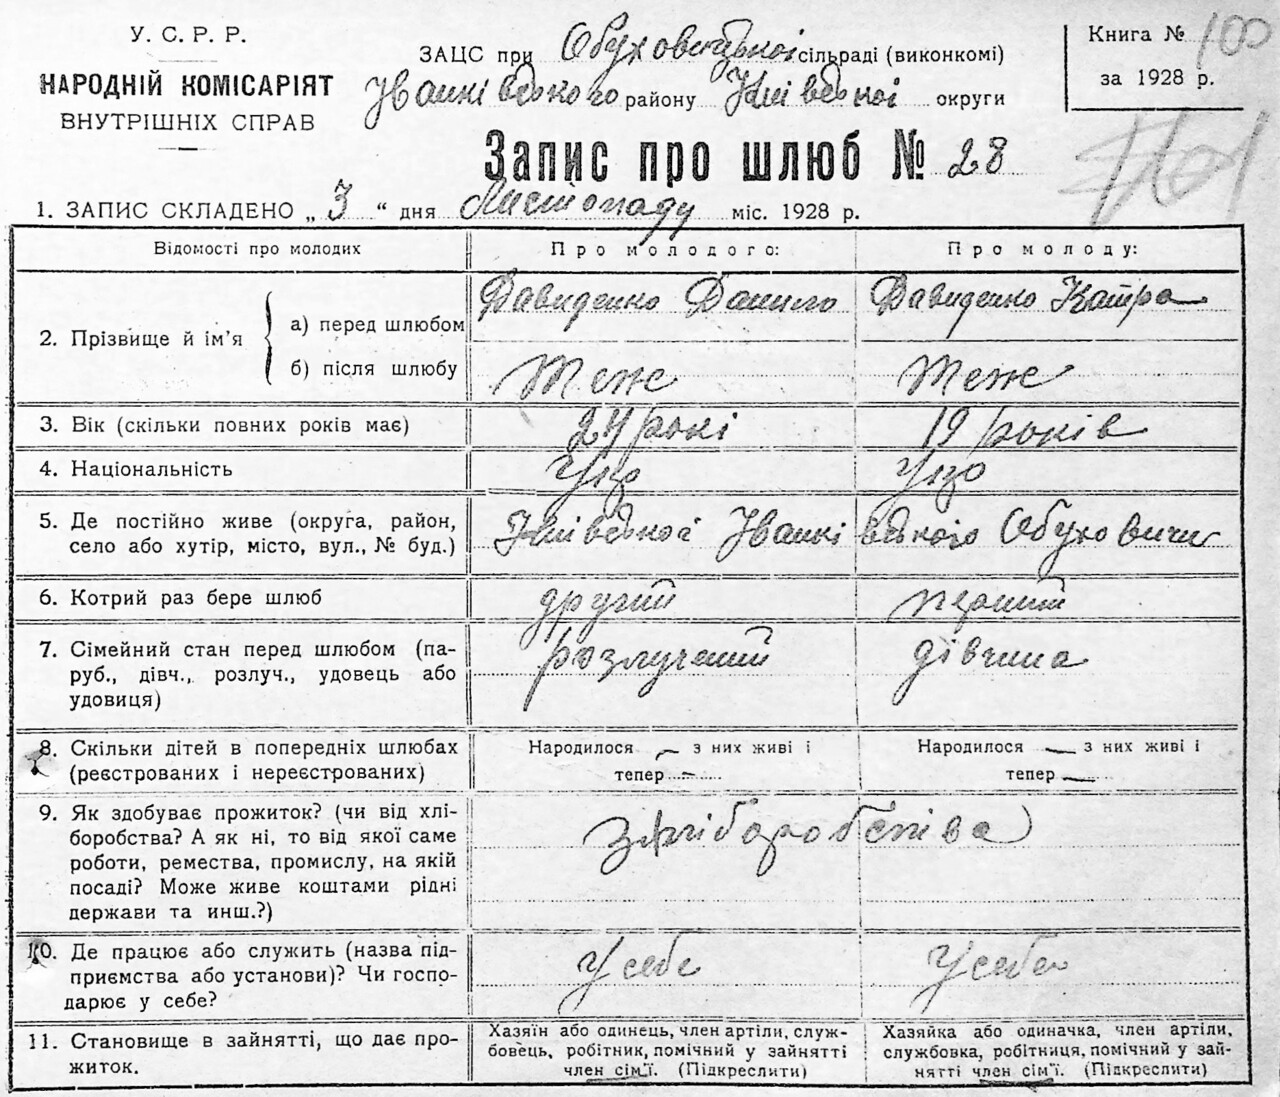 У. С. Р. Р.
НАРОДНІЙ КОМІСАРІЯТ
ВНУТРІШНІХ СПРАВ
ЗАЦС при Обуховицької сільраді (виконкомі)
Іванківського району Київської округи
Книга № 100
за 1928 р.
Запис про шлюб № 28
1. ЗАПИС СКЛАДЕНО „ 3 “ дня Листопаду міс. 1928 р.
Відомості про молодих Про молодого: Про молоду:
2. Прізвище й ім’я
а) перед шлюбом Давиденко Данило Давиденко Катря
б) після шлюбу Теж Теж
3. Вік (скільки повних років має) 24 рокі 19 років
4. Національність Укр Укр
5. Де постійно живе (округа, район,
село або хутір, місто, вул., № буд.) Київської Іванківського Обуховичи
6. Котрий раз бере шлюб другий перший
7. Сімейний стан перед шлюбом (па-
руб., дівч., розлуч., удовець або
удовиця) розлучений дівчина
8. Скільки дітей в попередніх шлюбах
(реєстрованих і нереєстрованих)
Народилося — з них живі і
тепер —
Народилося — з них живі і
тепер —
9. Як здобуває прожиток? (чи від хлі-
боробства? А як ні, то від якої саме
роботи, ремества, промислу, на якій
посаді? Може живе коштами рідні
держави та инш.?)
з хліборобства
10. Де працює або служить (назва під-
приємства або установи)? Чи госпо-
дарює у себе?
У себе У себе
11. Становище в зайнятті, що дає про-
житок.
Хазяїн або одинець, член артіли, служ-
бовець, робітник, помічний у зайнятті
член сім’ї. (Підкреслити)
Хазяйка або одиначка, член артіли,
службовка, робітниця, помічний у зай-
нятті член сім’ї. (Підкреслити)